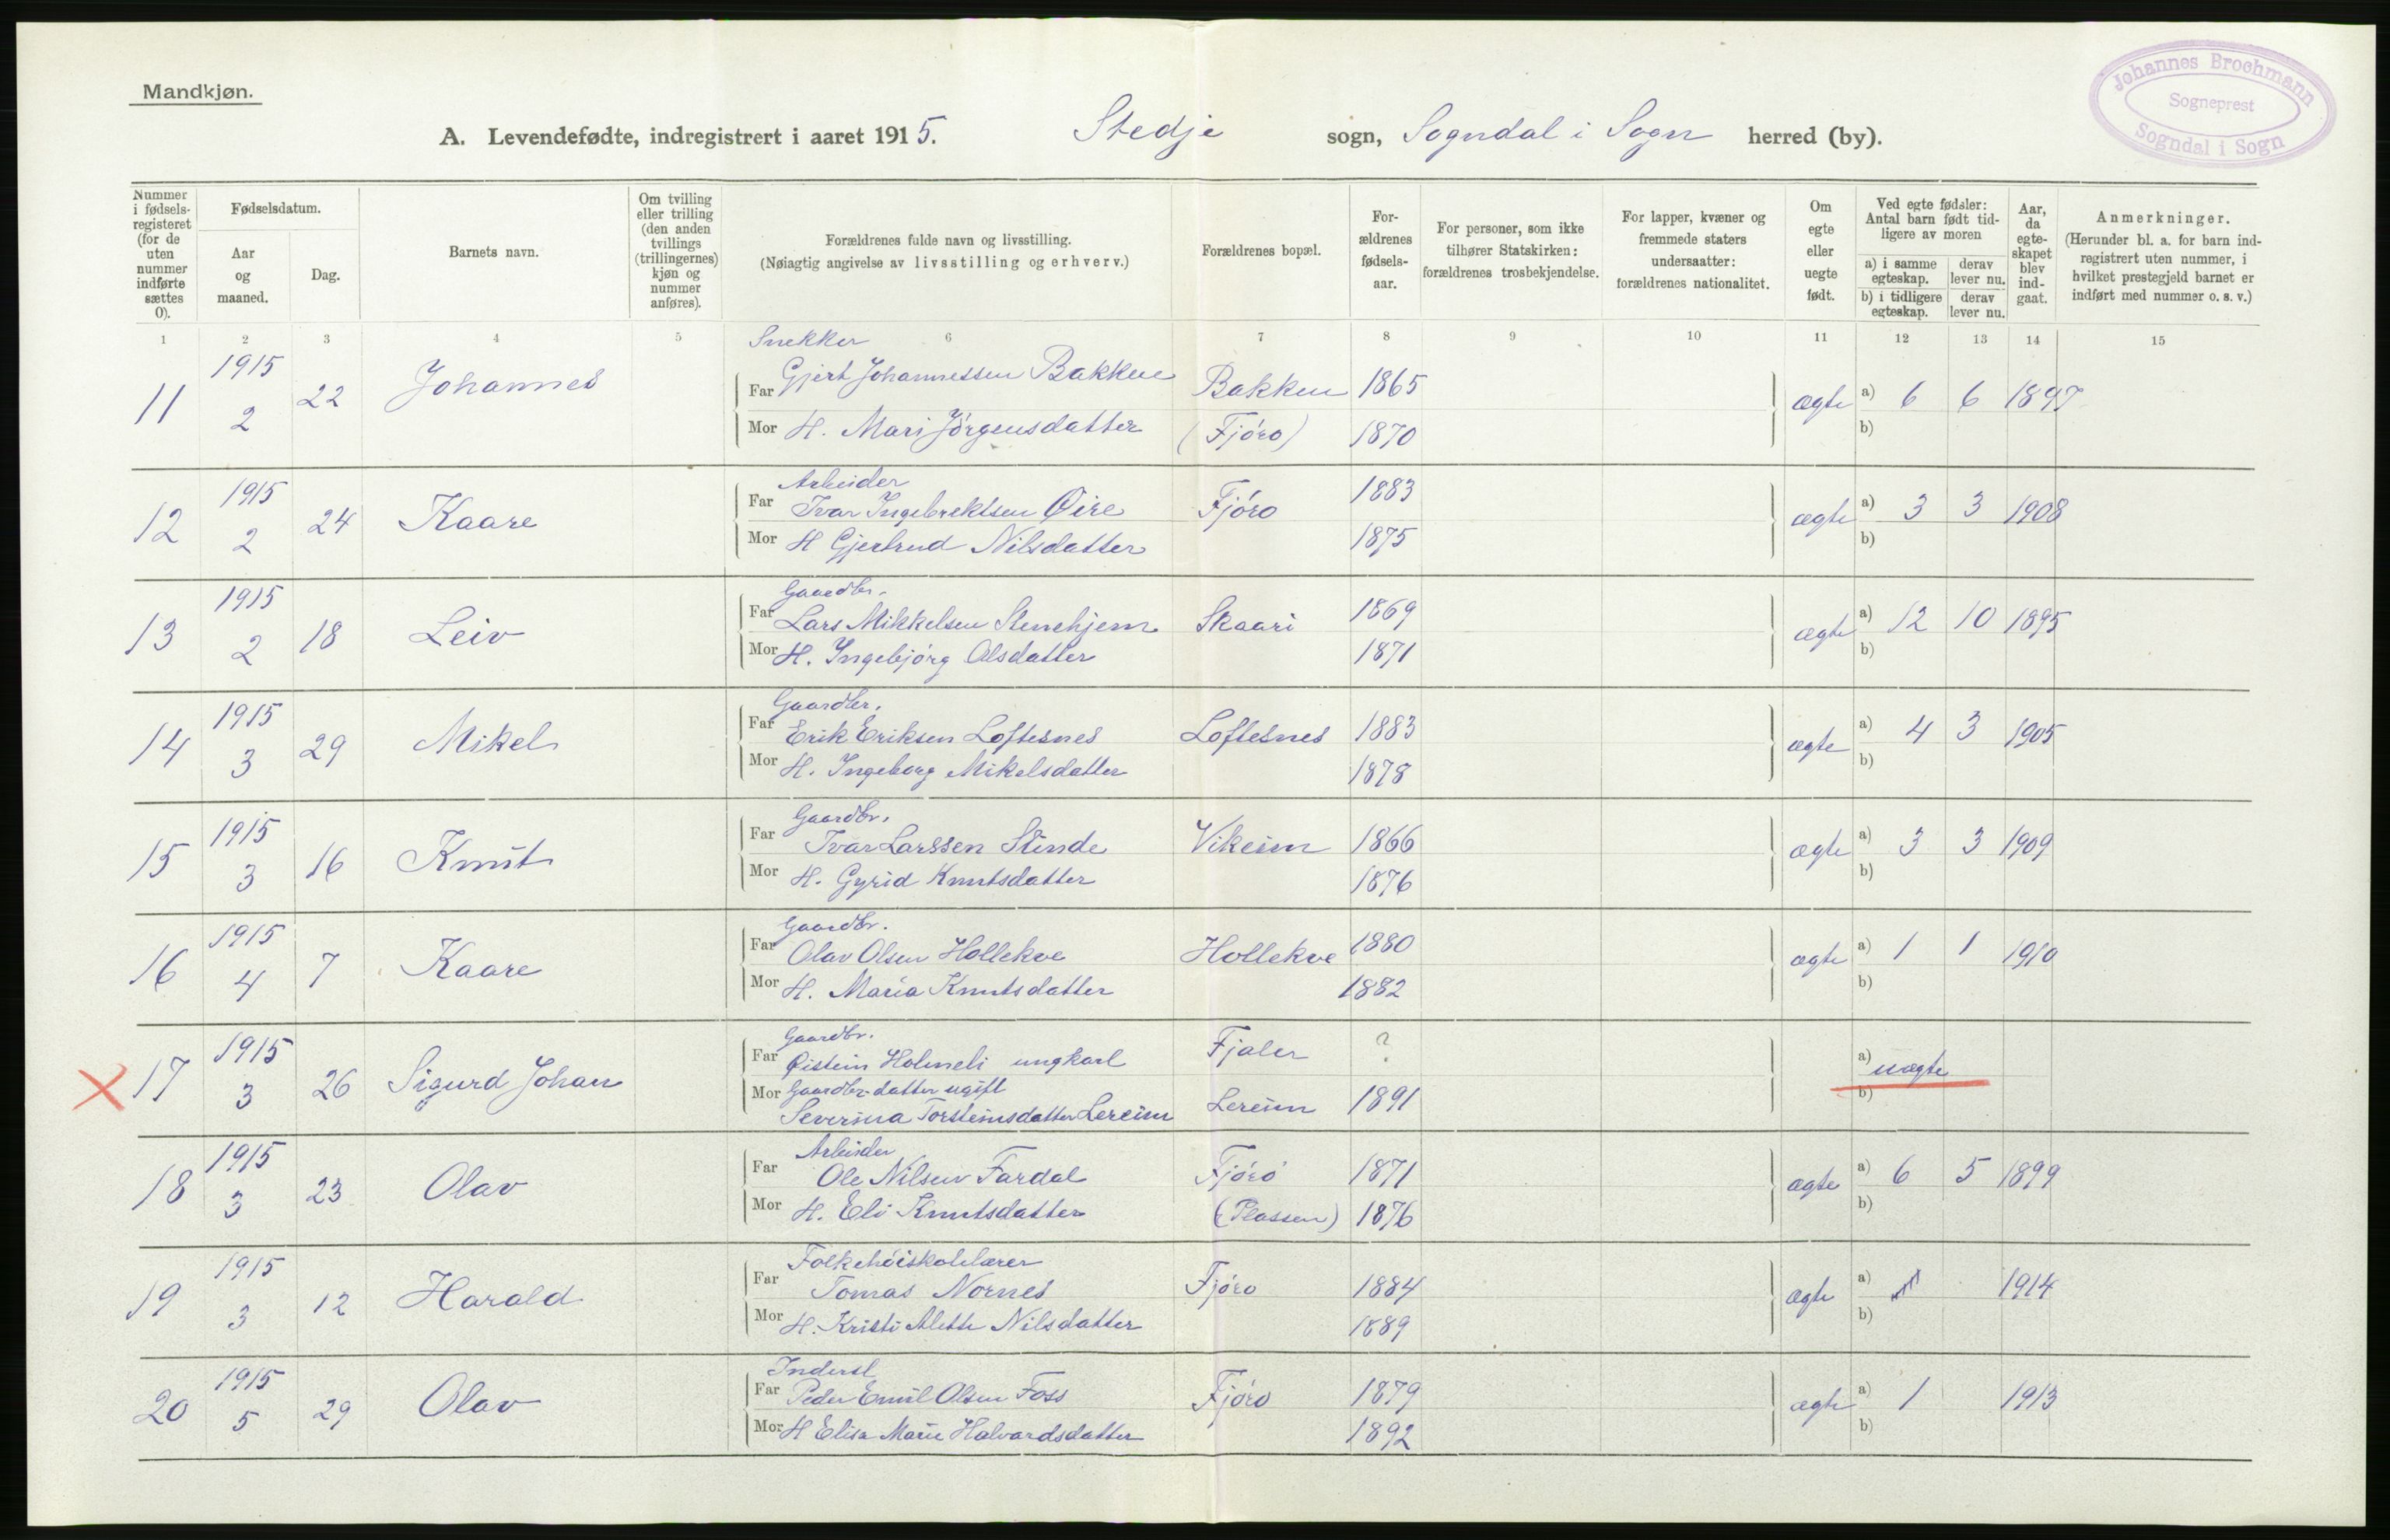 Mandkjøn.
A. Levendefødte, indregistrert i aaret 1915. Stedje sogn, Sogndal i Sogn herred (by).
Johannes Brochmann
Sogneprest
Sogndal i Sogn
Nummer i fødsels-registeret (for de uten nummer indførte sættes 0).
Fødselsdatum.
Aar og maaned.
Dag.
Barnets navn.
Om tvilling eller trilling (den anden tvillings (trillingernes) kjøn og nummer anføres).
Forældrenes fulde navn og livsstilling.
(Nøiagtig angivelse av livsstilling og erhverv.)
Forældrenes bopæl.
For-ældrenes fødsels-aar.
For personer, som ikke tilhører Statskirken: forældrenes trosbekjendelse.
For lapper, kvæner og fremmede staters undersaatter: forældrenes nationalitet.
Om egte eller uegte født.
Ved egte fødsler: Antal barn født tid-ligere av moren
a) i samme egteskap. derav lever nu.
b) i tidligere egteskap. derav lever nu.
Aar, da egte-skapet blev ind-gaat.
Anmerkninger.
(Herunder bl. a. for barn ind-registrert uten nummer, i hvilket prestegjeld barnet er indført med nummer o. s. v.)
1 2 3 4 5 6 7 8 9 10 11 12 13 14 15
Snekker
11 1915 2 22 Johannes Far Gjert Johannessen Bakken Bakken 1865 ægte a) 6 6 1897
Mor H. Mari Jørgensdatter (Fjøro) 1870 b)
Arbeider
12 1915 2 24 Kaare Far Ivar Ingebrektsen Øire Fjøro 1883 ægte a) 3 3 1908
Mor H Gjertrud Nilsdatter 1875 b)
Gaardbr.
13 1915 2 18 Leiv Far Lars Mikkelsen Stenehjem Skaari 1869 ægte a) 12 10 1895
Mor H. Ingebjørg Olsdatter 1871 b)
Gaardbr.
14 1915 3 29 Mikel Far Erik Eriksen Loftesnes Loftesnes 1883 ægte a) 4 3 1905
Mor H. Ingeborg Mikelsdatter 1878 b)
Gaardbr.
15 1915 3 16 Knut Far Ivar Larssen Stinde Vikeim 1866 ægte a) 3 3 1909
Mor H. Gyrid Knutsdatter 1876 b)
Gaardbr.
16 1915 4 7 Kaare Far Olav Olsen Hollekve Hollekve 1880 ægte a) 1 1 1910
Mor H. Maria Knutsdatter 1882 b)
Gaardbr.
17 1915 3 26 Sigurd Johan Far Øistein Holmeli ungkarl Fjaler ? a) uægte
Mor Gaardbr.datter ugift
Severina Torsteinsdatter Lereim Lereim 1891 b)
Arbeider
18 1915 3 23 Olav Far Ole Nilsen Fardal Fjørø 1871 ægte a) 6 5 1899
Mor H. Eli Knutsdatter (Plassen) 1876 b)
Folkehøiskolelærer
19 1915 3 12 Harald Far Tomas Nornes Fjøro 1884 ægte a) 1914
Mor H. Kristi Alette Nilsdatter 1889 b)
Inderst
20 1915 5 29 Olav Far Peder Emil Olsen Foss Fjøro 1879 ægte a) 1 1913
Mor H Elisa Marie Halvardsdatter 1892 b)